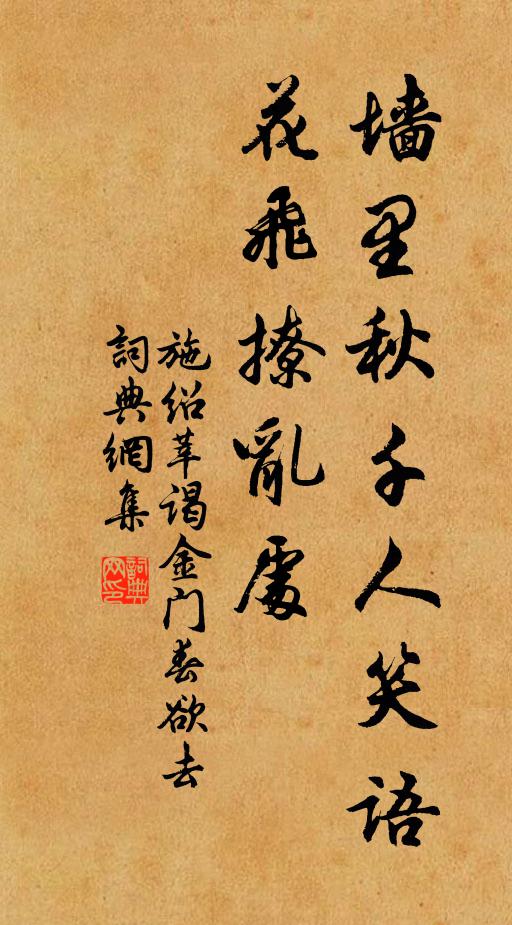 墙里秋千人笑语
花飛撩亂處
施绍莘谒金门春欲去
詞典網集
詞典网印